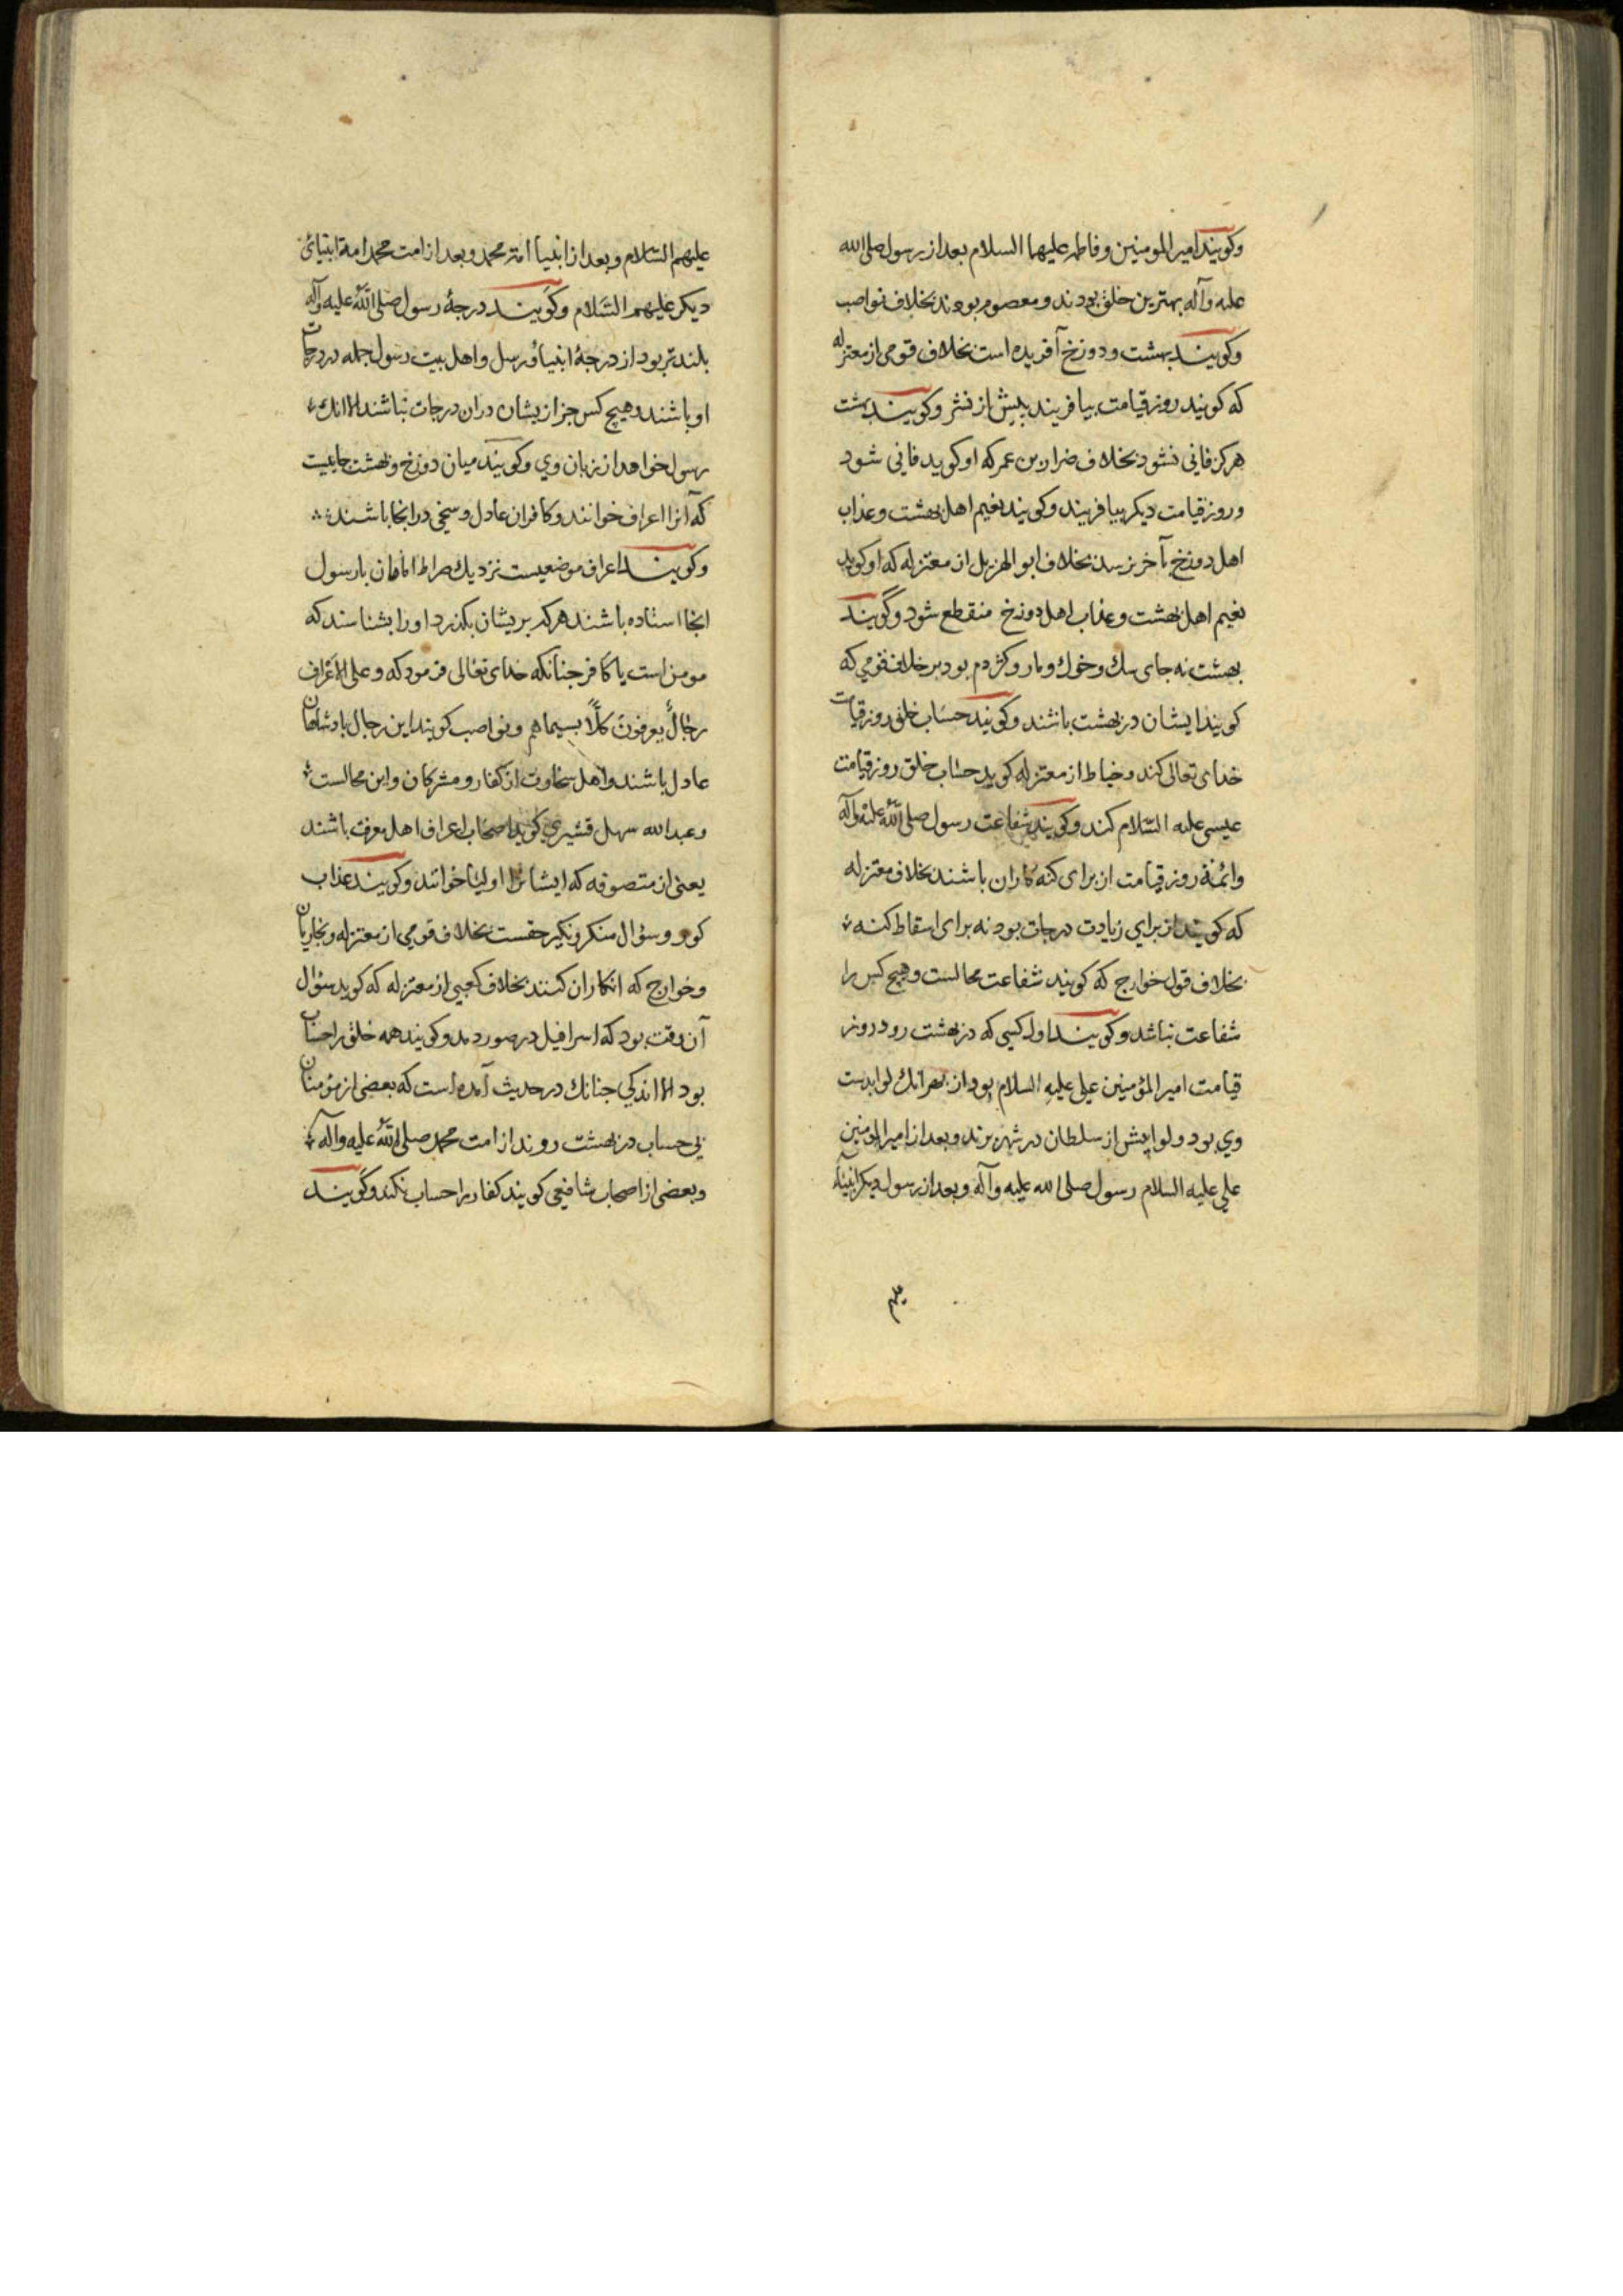 وكويند امير المومنين وفاطمه عليهما السلام بعد از رسول صلى الله
عليه وآله بهترين خلق بودند ومعصوم بودند بخلاف نواصب
وكويند بهشت ودوزخ آفريده است بخلاف قومى از معتزله
كه كويند روز قيامت بيافريند پيش از نشر وكويند بهشت
هركز فانى نشود بخلاف ضرار بن عمر كه او كويد فانى شود
وروز قيامت ديكر بيافريند وكويند نعيم اهل بهشت وعذاب
اهل دوزخ بآخر نرسد بخلاف ابو الهزيل از معتزله كه او كويد
نعيم اهل بهشت وعذاب اهل دوزخ منقطع شود وكويند
بهشت نه جاى سك وخوك ومار وكژدم بود بر خلاف قومي كه
كويند ايشان در بهشت باشند وكويند حساب خلق روز قيامت
خداى تعالى كند وخياط از معتزله كويد حساب خلق روز قيامت
عيسى عليه السلام كند وكويند شفاعت رسول صلى الله عليه وآله
وائمة روز قيامت از براى كنه كاران باشند بخلاف معتزله
كه كويند از براي زيادت درجات بود نه براى اسقاط كنه
بخلاف قول خوارج كه كويند شفاعت محالست وهيچ كس را
شفاعت نباشد وكويند اول كسي كه در بهشت رود روز
قيامت امير المؤمنين علي عليه السلام بود از بهر انك لوا بدست
وي بود ولوا پيش از سلطان در شهر برند وبعد از امير المومنين
علي عليه السلام رسول صلى الله عليه وآله وبعد از رسول ديكر انبياء
عليهم السلام وبعد از انبيا امة محمد وبعد از امت محمد امة انبيائ
ديكر عليهم السلام وكويند درجۀ رسول صلى الله عليه وآله
بلند تر بود از درجۀ انبياء ورسل واهل بيت رسول جمله در درجات
او باشند وهيچ كس جز ازيشان دران درجات نباشند الا انك
رسول خواهد از زبان وي وكويند ميان دوزخ وبهشت جاييست
كه آنرا اعراف خوانند وكافران عادل وسخي در انجا باشند
وكويند اعراف موضعيست نزديك صراط امامان با رسول
انجا استاده باشند هركه بريشان بكذرد اورا بشناسند كه
مومن است يا كافر جنانكه خداى تعالى فرمود كه وعلى الاعراف
رجال يعرفون كلا بسيماهم ونواصب كويند اين رجال پادشاهان
عادل باشند واهل سخاوت از كفار ومشركان واين محالست
وعبد الله سهل قشيري كويد اصحاب اعراف اهل معرفت باشند
يعنى از متصوفه كه ايشانرا اوليا خوانند وكويند عذاب
كور وسؤال منكر ونكير حقست بخلاف قومي از معتزله ونجاريان
وخوارج كه انكار ان كنند بخلاف كعبي از معتزله كه كويد سؤال
آن وقت بود كه اسرافيل در صور دمد وكويند همه خلق را حساب
بود الا اندكي جنانك در حديث آمده است كه بعضى از مؤمنان
بي حساب در بهشت روند از امت محمد صلى الله عليه وآله
وبعضى از اصحاب شافعي كويند كفار را حساب نكند وكويند